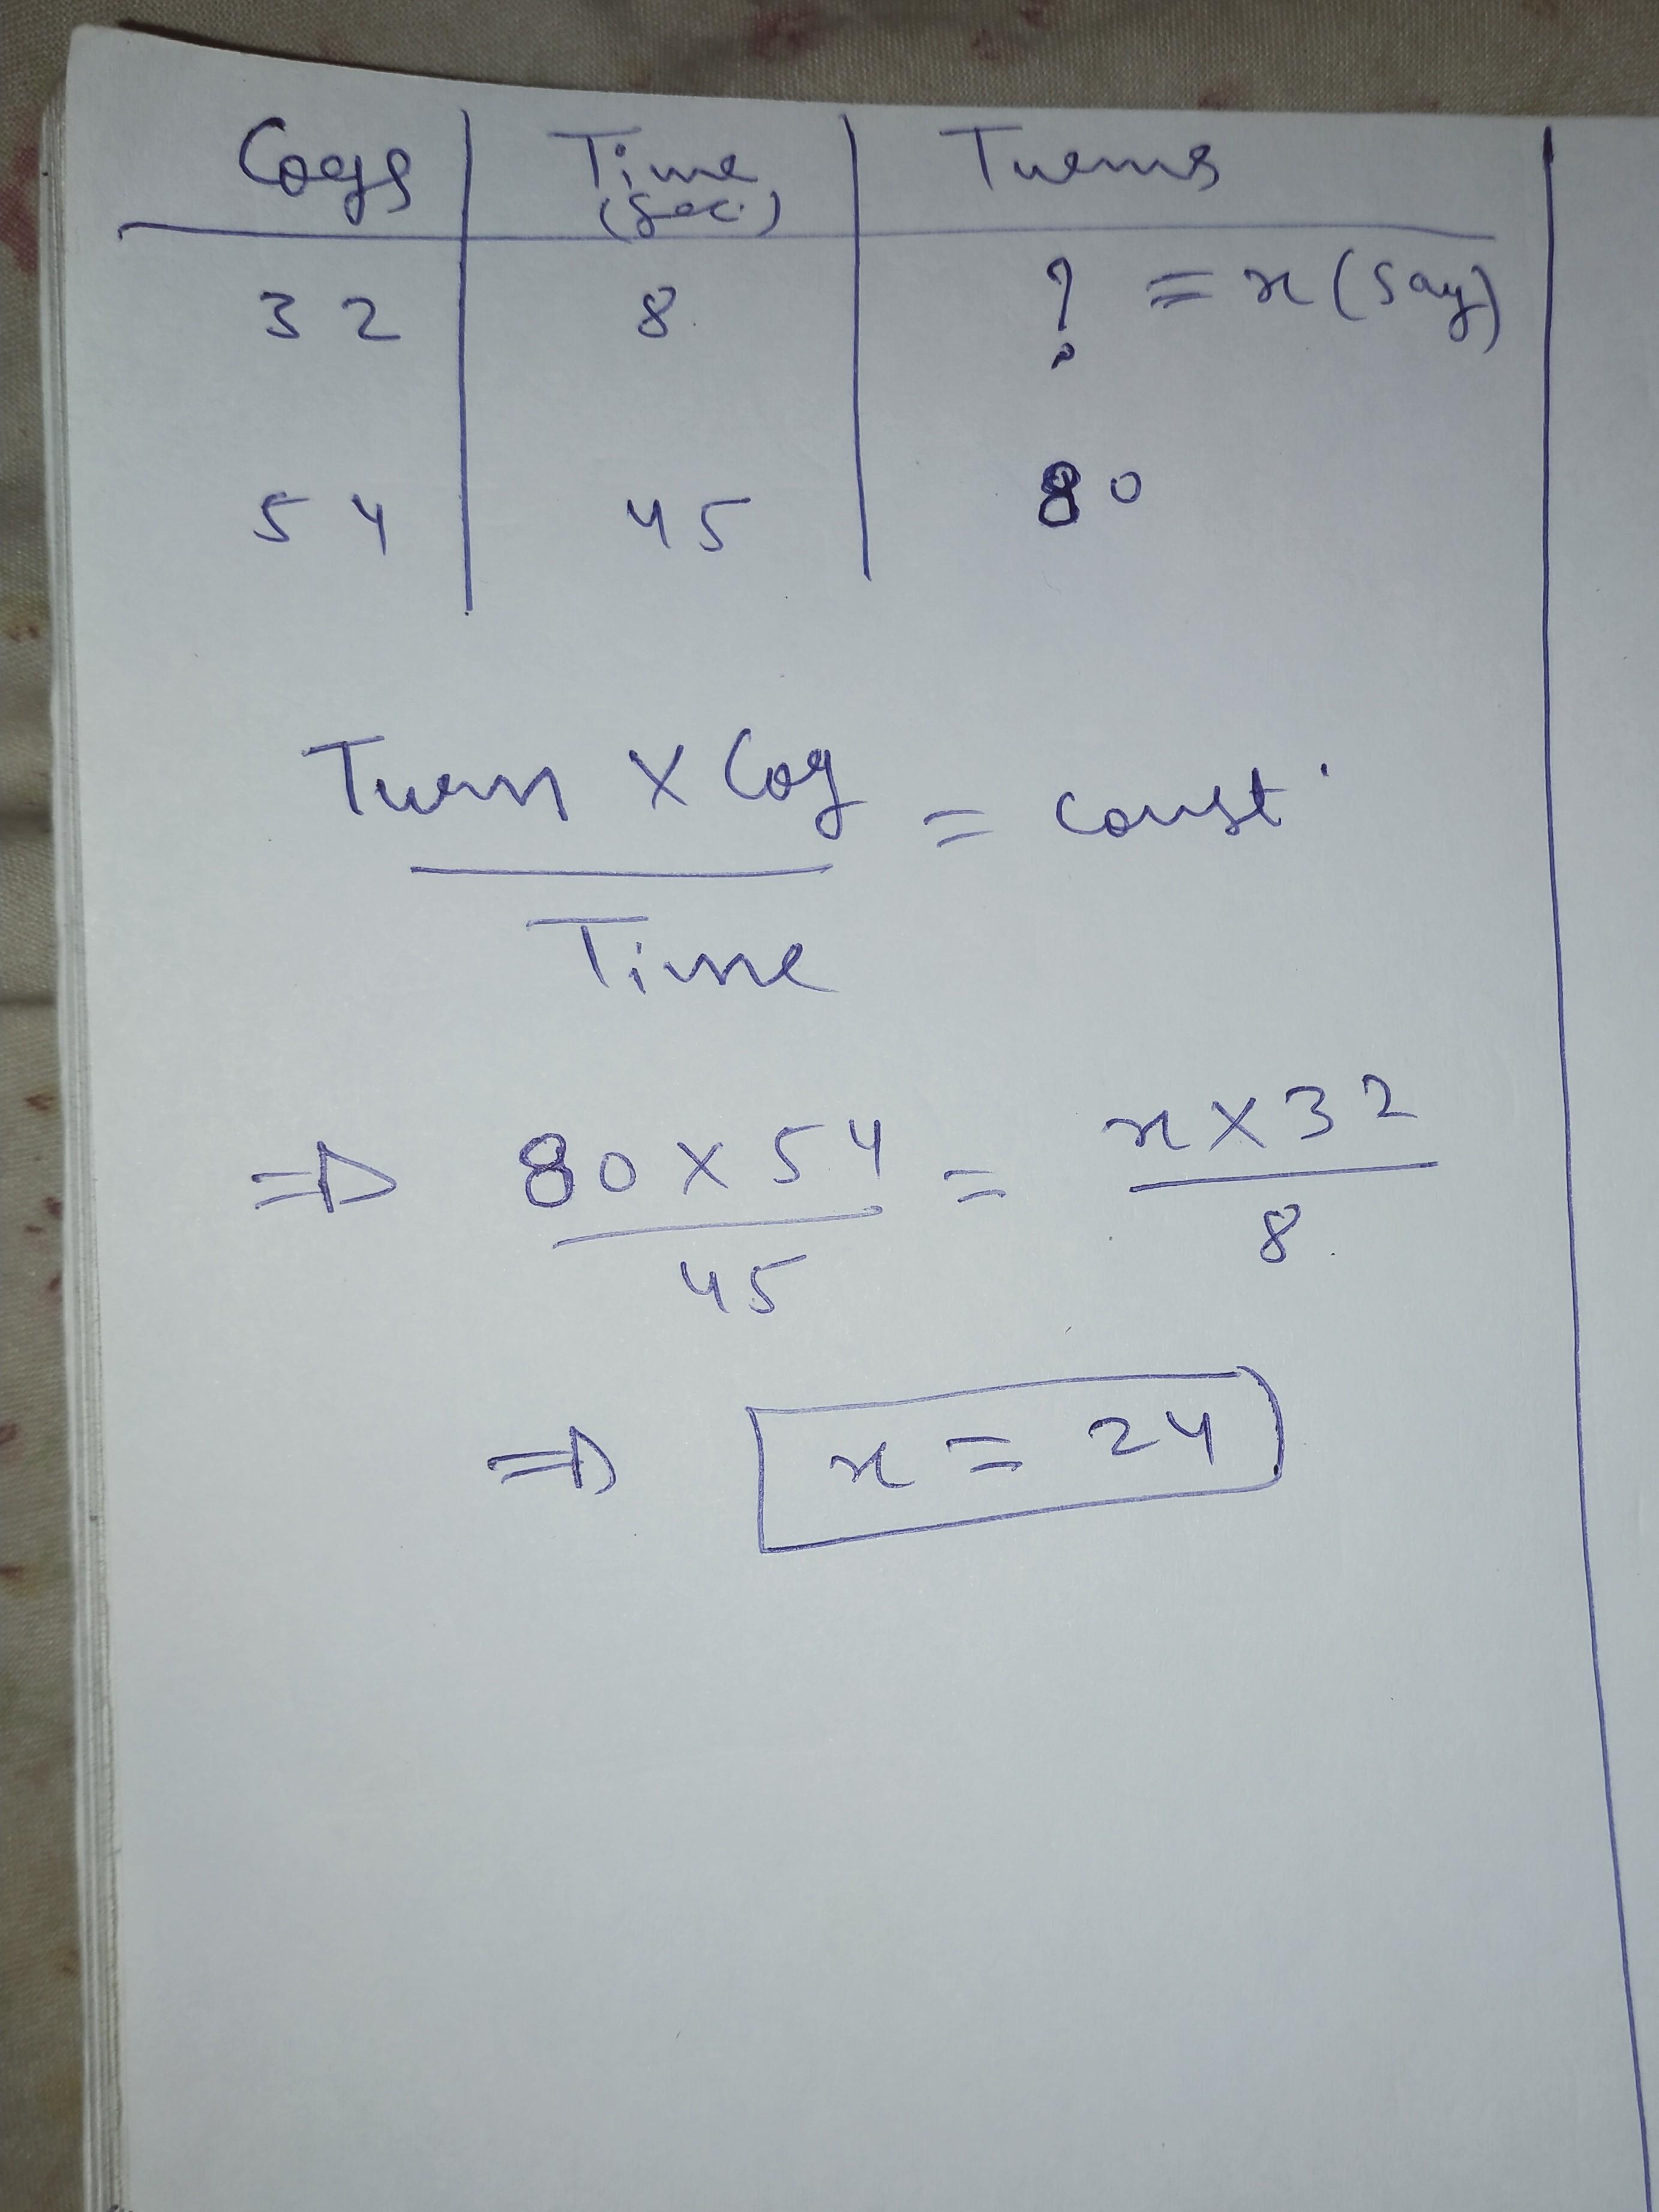 Cogs Time (Sec.) Turns
32 8 ? = x (say)
54 45 80
Turn X Cog / Time = const.
⇒ 80 X 54 / 45 = x X 32 / 8
⇒ x = 24